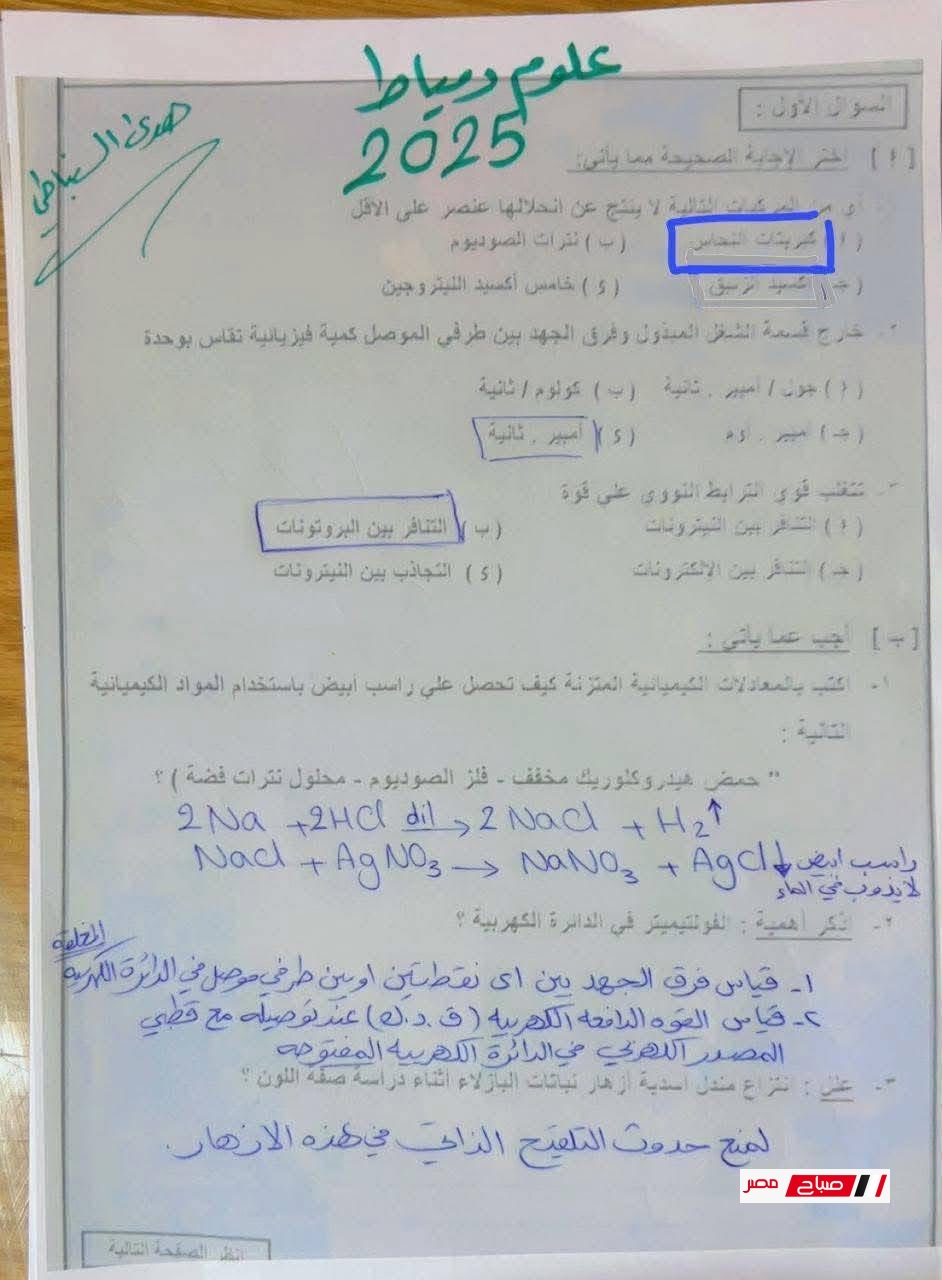 علوم دمياط
2025
هدى السنباطي
السؤال الأول :
[ أ ] اختر الإجابة الصحيحة مما يأتي:
أي من المركبات التالية لا ينتج عن انحلالها عنصر على الأقل
( أ ) كبريتات النحاس ( ب ) نترات الصوديوم
( جـ ) أكسيد الزئبق ( د ) خامس أكسيد النيتروجين
٢- خارج قسمة الشغل المبذول وفرق الجهد بين طرفي الموصل كمية فيزيائية تقاس بوحدة
( أ ) جول / أمبير . ثانية ( ب ) كولوم / ثانية
( جـ ) أمبير . أوم ( د ) أمبير . ثانية
٣- تتغلب قوى الترابط النووي على قوة
( أ ) التنافر بين النيترونات ( ب ) التنافر بين البروتونات
( جـ ) التنافر بين الإلكترونات ( د ) التجاذب بين النيترونات
[ ب ] أجب عما يأتي :
١- اكتب بالمعادلات الكيميائية المتزنة كيف تحصل على راسب أبيض باستخدام المواد الكيميائية
التالية :
" حمض هيدروكلوريك مخفف - فلز الصوديوم - محلول نترات فضة ) ؟
2Na + 2HCl dil → 2NaCl + H₂↑
NaCl + AgNO₃ → NaNO₃ + AgCl↓ راسب ابيض
لا يذوب في الماء
٢- اذكر أهمية : الفولتيميتر في الدائرة الكهربية ؟
١- قياس فرق الجهد بين اى نقطتين او بين طرفي موصل في الدائرة الكهربية المغلقة
٢- قياس القوه الدافعه الكهربيه ( ق . د . ك ) عند توصيله مع قطبي
المصدر الكهربي في الدائرة الكهربيه المفتوحه
٣- علل : انتزاع مندل أسدية أزهار نباتات البازلاء أثناء دراسة صفة اللون ؟
لمنع حدوث التلقيح الذاتي في هذه الازهار.
صباح مصر
انظر الصفحة التالية